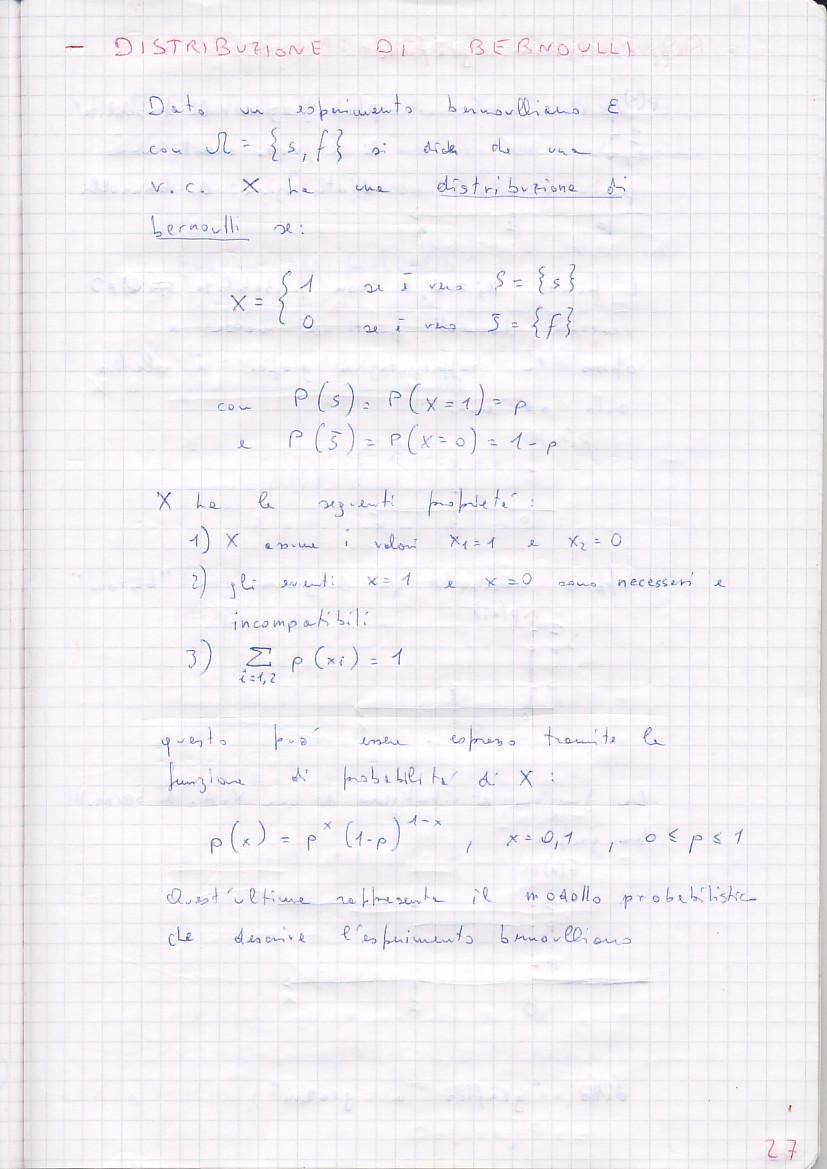 - DISTRIBUZIONE DI BERNOULLI
Dato un esperimento bernoulliano E
con Ω = {s, f} si dice che una
v.c. X ha una distribuzione di
bernoulli se:
X = { 1 se è vero S = {s}
0 se è vero S̄ = {f}
con P(S) = P(X=1) = p
e P(S̄) = P(X=0) = 1-p
X ha le seguenti proprietà:
1) X assume i valori x₁=1 e x₂=0
2) gli eventi x=1 e x=0 sono necessari e
incompatibili
3) Σ p(xi) = 1
i=1,2
questo può essere espresso tramite la
funzione di probabilità di X:
p(x) = pˣ (1-p)¹⁻ˣ , x=0,1 , 0 ≤ p ≤ 1
Quest'ultima rappresenta il modello probabilistic
che descrive l'esperimento bernoulliano
27